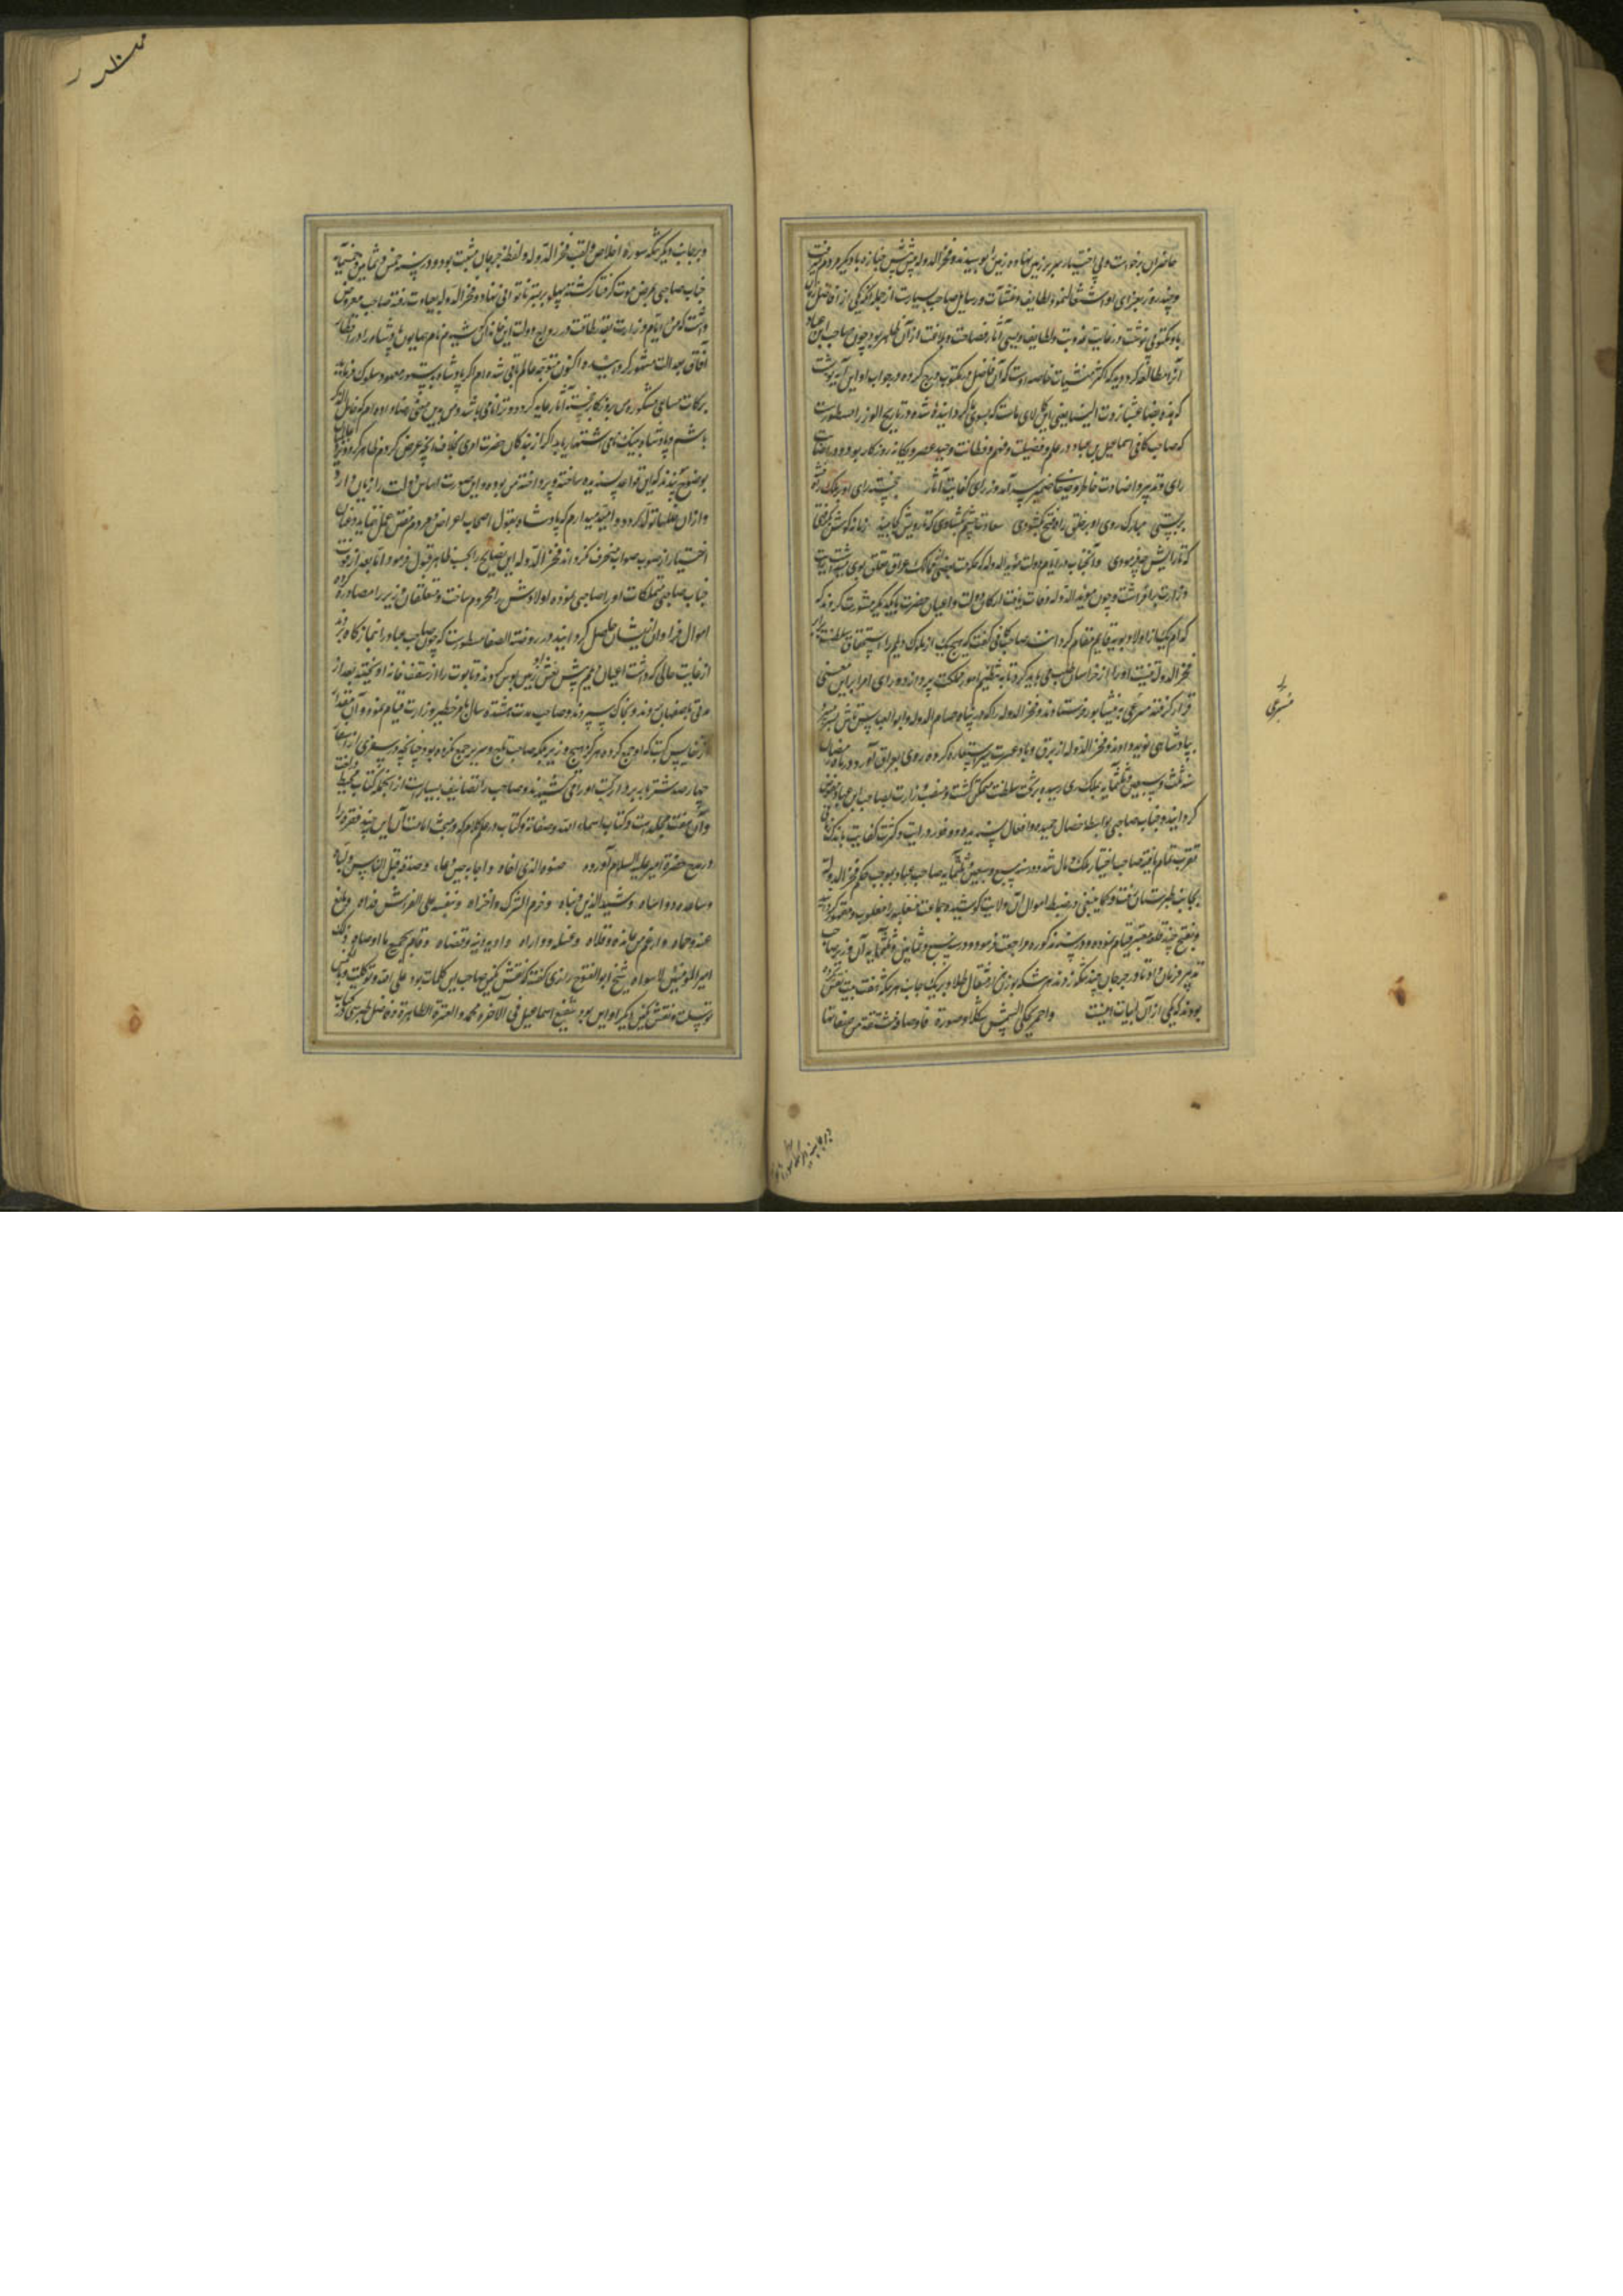 حاضران برخاست و بی اختیار سر بر زمین نهاده زمین را بوسیدند و فخرالدوله پیش پیش جنازه با دیگر مردم میرفت
و چند روز بعزای او اشتغال نمود و لطایف و منشآت و رسایل صاحب بسیار است از جمله آنکه یکی از افاضل
باو مکتوبی نوشت در غایت عذوبت و لطایف و بسی آثار فصاحت و بلاغت از آن ظاهر بود چون صاحب ابن عباد
آنرا مطالعه کرد دید که اکثر منشیات خاصه اوست که آن فاضل در مکتوب درج کرده در جواب او این آیه نوشت
که هذه بضاعتنا ردت الینا یعنی این کالای ماست که بسوی ما گردانیده شده و در تاریخ الوزرا مسطور است
که صاحب کافی اسماعیل بن عباد در علم و فضیلت و فهم و فطانت وحید عصر و یگانه روزگار بود و در اصابت
رای و تدبیر و اضاءت خاطر و صفای ضمیر سرآمد وزرای کفایت آثار خجسته رای او
مبارک روی او بر خلق راه فتح بگشودی سعادت چشم بگشادی که تا رویش کجا بیند زمانه گوش
که تا رایش چه فرمودی و آنجناب در ایام دولت مؤیدالدوله که حکومت بعضی از ممالک عراق تعلق بوی داشت رایت
وزارت برافراشت و چون مؤیدالدوله وفات یافت ارکان دولت و اعیان حضرت با یکدیگر مشورت کردند که
کدام یک از اولاد بویه قایم مقام گردانند صاحب کافی گفت که هیچ یک از ملوک دیلم را استحقاق سلطنت
فخرالدوله نیست او را از خراسان طلب می باید کرد تا به تنظیم امور مملکت پردازد و رای امرا بر این معنی
قرار گرفته مسرعی به نیشابور فرستادند و فخرالدوله را که در پناه حسام الدوله ابوالعباس تاش بسر میبرد
بپادشاهی نوید دادند و فخرالدوله از برق و باد سرعت سیر استعاره کرده روی بعراق آورد و در ماه رمضان
سنه ثلث و سبعین و ثلثمایه بملک ری رسیده بر تخت سلطنت متمکن گشت و منصب وزارت بصاحب ابن عباد مفوض
گردانید و جناب صاحبی بواسطه خصال حمیده و افعال پسندیده و وفور درایت و کثرت کفایت
تقرب تمام یافته صاحب اختیار ملک و مال شد و در سنه سبع و سبعین و ثلثمایه صاحب عباد بموجب حکم فخرالدوله
بجانب طبرستان رفت و کما ینبغی در ضبط اموال آن ولایت کوشیده جماعت متغلبه را مغلوب و مقهور گردانید
و بفتح چند قلعه معتبر قیام نموده و در سنه مذکوره مراجعت فرمود و در سنه تسع و ثمانین و ثلثمایه آن وزیر صاحب
تدبیر فرمان داد تا در جرجان چند سکه زدند هر سکه بوزن هزار مثقال طلا و بر یک جانب هر سکه هفت بیت نقش
بودند که یکی از آن ابیات اینست واحمر یحکی الشمس شکلا و صورة فاوصافه مشتقة من صفاتها
مسرعی
و بر جانب دیگر سکه سوره اخلاص و لقب فخرالدوله و لفظ جرجان مثبت بود و در سنه خمس و ثمانین و ثلثمایه
جناب صاحبی بمرض موت گرفتار گشته پهلو بر بستر ناتوانی نهاد و فخرالدوله بعیادت رفته صاحب معروض
داشت که من در ایام وزارت بقدر طاقت در رواج دولت این خاندان کوشیدم نام همایون پادشاه را در اقطار
آفاق بعدالت مشهور گردانیدم و اکنون متوجه عالم باقی شده ام اگر پادشاه بدستور معهود سلوک فرماید
برکات مساعی مشکوره من بروزگار خجسته آثار عاید گردد و ذکر نام من باشد و من بدین معنی رضا داده ام که خامل الذکر
باشم و پادشاه بنیک نامی اشتهار یابد اگر از بندگان حضرت امری بخلاف آنچه عرض کردم ظاهر گردد
بوضوح پیوندد که این قواعد پسندیده ساخته و پرداخته من بوده و این صورت اساس دولت را زیان دارد
و از آن خللها تولد کند و امید میدارم که پادشاه بقول اصحاب اعراض و مردم مغرض عمل ننماید و عنان
اختیار از صوب صواب منحرف نگرداند فخرالدوله این نصایح را بحسب ظاهر قبول فرمود اما بعد از فوت
جناب صاحبی تملکات او را ضبط نموده اولادش را محروم ساخت و متعلقان وزیر را مصادره کرده
اموال فراوان از ایشان حاصل گردانید و در روضة الصفا مسطور است که چون صاحب عباد را بنمازگاه بردند
از غایت جلالی که داشت اعیان دیلم پیش نعش او زمین بوس کردند و تابوت را از سقف خانه آویختند بعد از
مدتی باصفهان بردند و بخاک سپردند و صاحب مدت هشتده سال بامر خطیر وزارت قیام نمود و آن مقدار
از نفایس کتب که او جمع کرده هرگز هیچ وزیر بلکه صاحب تاج و سریر جمع نکرده بود چنانچه در سفری از اسفار
چهار صد شتر بار بردار کتب او را می کشیدند و صاحب را تصانیف بسیار است از آنجمله کتاب محیط در لغت
و آن هفت مجلد است و کتاب اسماء الله و صفاته و کتاب در علم کلام که در مبحث امامت آن این چند فقره را
در مدح حضرة امیر علیه السلام آورده صنوه الذی آخاه و اجابه حین دعاه و صدقه قبل الناس و لباه
و ساعده و واساه و شید الدین و بناه و هزم الشرک و اخزاه و بنفسه علی الفراش فداه و دافع
عنه و حماه و ارغم من عانده و قلاه و غسله و واراه و ادی دینه و قضاه و قام بجمیع ما اوصاه ذلک
امیرالمؤمنین لا سواه شیخ ابوالفتوح رازی گفته که نقش نگین صاحب این کلمات بود علی الله توکلت
توسلت و نقش نگین دیگر او این بود شفیع اسماعیل فی الآخره محمد و العترة الطاهرة و فاضل طبرسی در کتاب